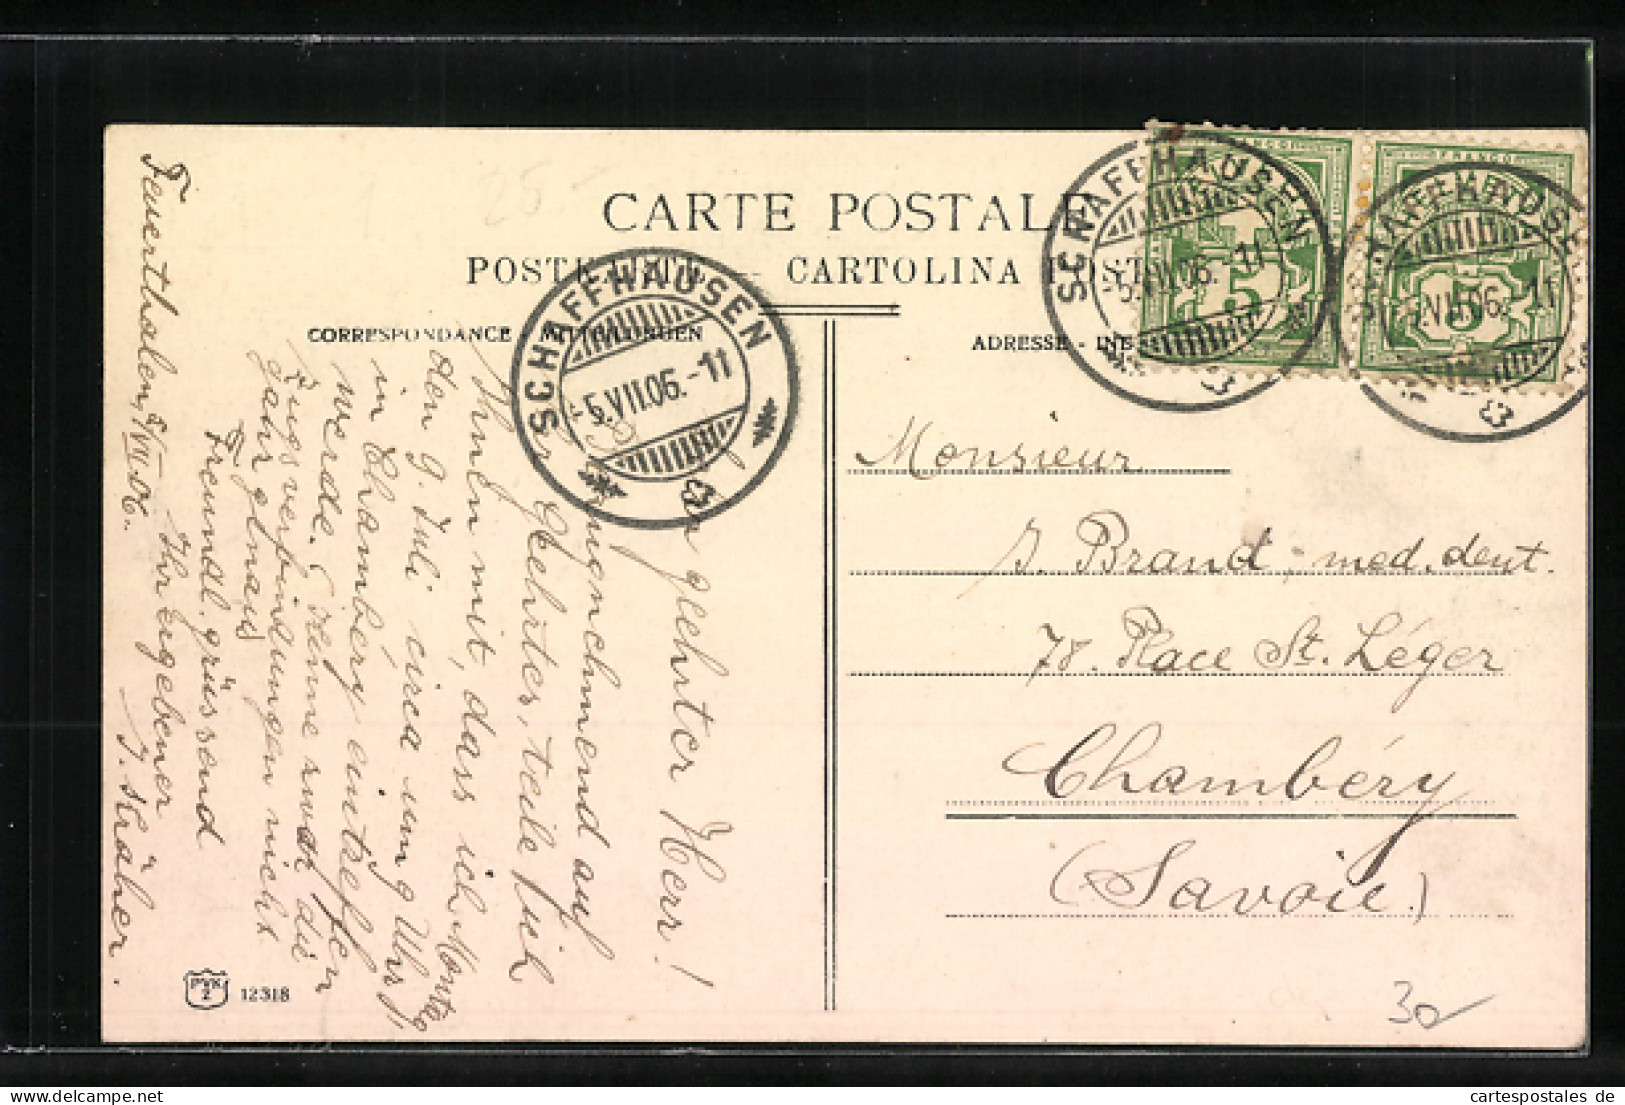 CARTE POSTALE
POSTKARTE — CARTOLINA POSTALE
CORRESPONDANCE - MITTEILUNGEN
ADRESSE - IN
SCHAFFHAUSEN
-5.VII.06.-11
SCHAFFHAUSEN
-5.VII.06.-11
SCHAFFHAUSE
5.VII.06.-11
FRANCO
5
FRANCO
5
Monsieur
J. Brand, med. dent.
78. Place St. Léger
Chambéry
(Savoie.)
Feuerthalen, 5/VII.06.
Sehr geehrter Herr!
Bezugnehmend auf
Ihr Geehrtes, teile hie
Ihnen mit, dass ich Montag
den 9. Juli circa um 9 Uhr
in Chambéry eintreffen
werde. Kenne zwar die
Zugsverbindungen nicht
ganz genau
Freundl. grüssend
Ihr Ergebener
J. Sträher.
PYK
Z
12318
25-
30
www.cartespostales.de